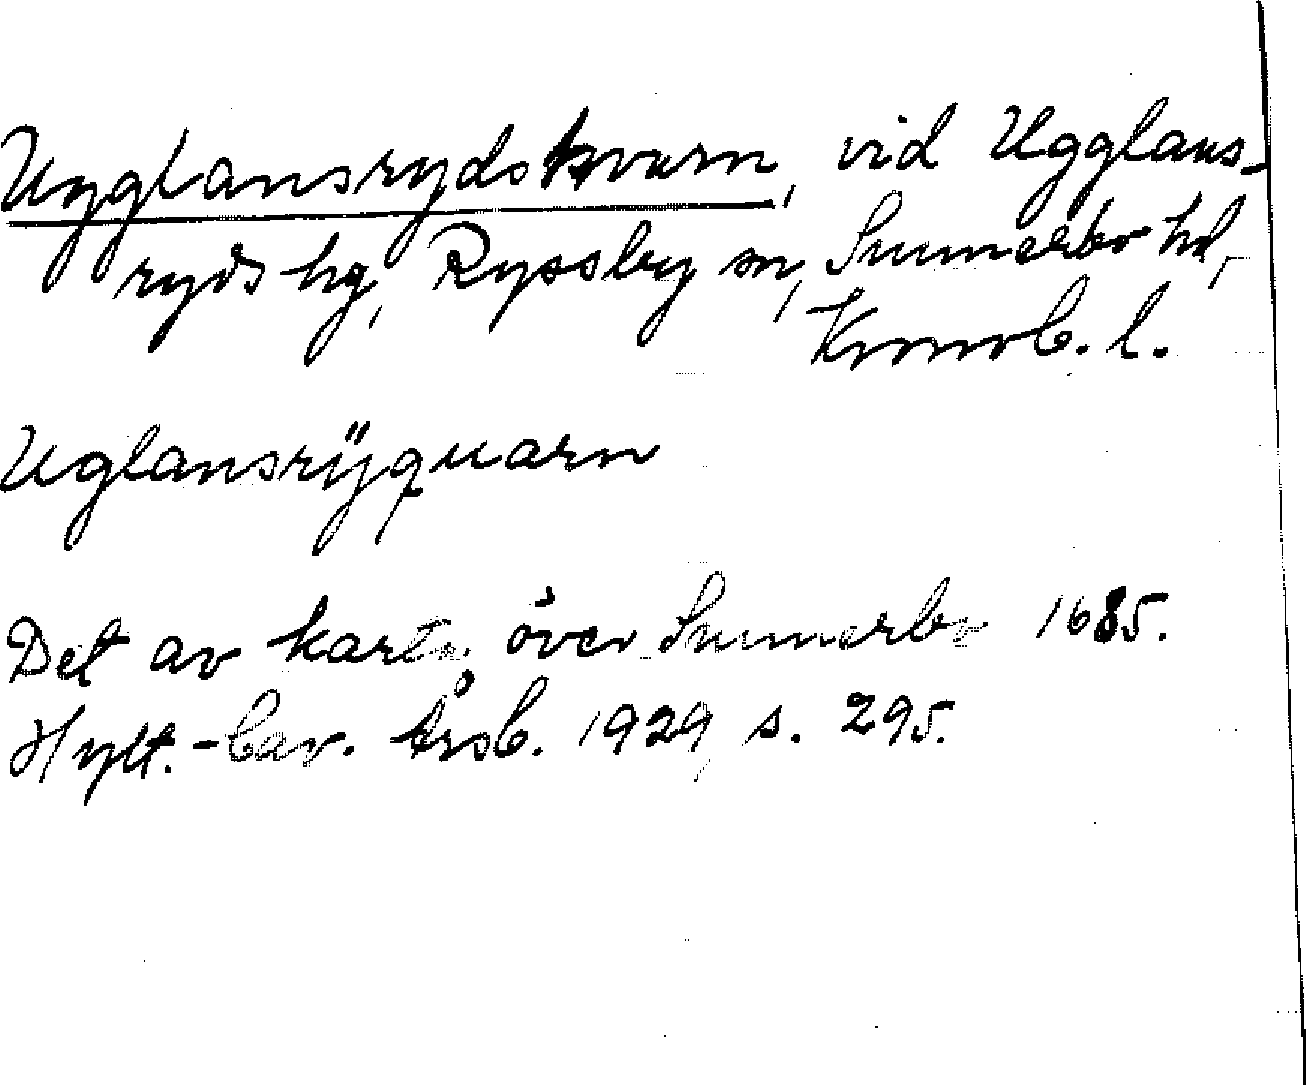 Ugglansrydskvarn, vid Ugglans-
ryds hg, Ryssby sn, Sunnerbo hd,
Kronob. l.
Uglansrÿquarn
Det av karta över Sunnerbo 1685.
Hylt.-Cav. Årsb. 1929, s. 295.